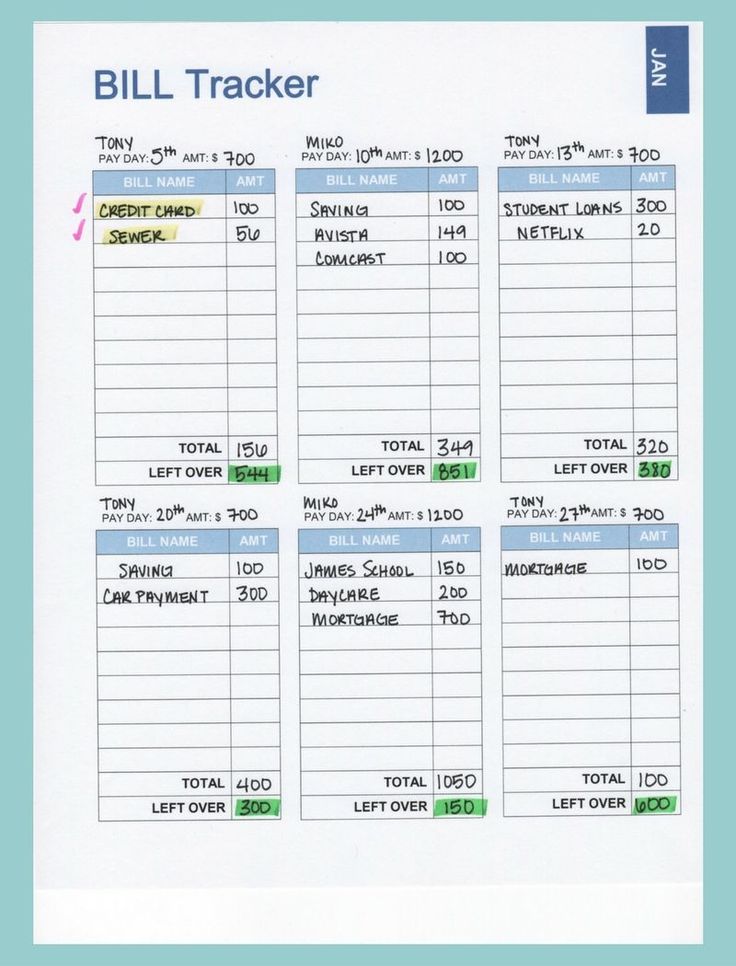 BILL Tracker
JAN
TONY
PAY DAY: 5th AMT: $ 700
BILL NAME AMT
CREDIT CARD 100
SEWER 56
TOTAL 156
LEFT OVER 544
MIKO
PAY DAY: 10th AMT: $ 1200
BILL NAME AMT
SAVING 100
AVISTA 149
COMCAST 100
TOTAL 349
LEFT OVER 851
TONY
PAY DAY: 13th AMT: $ 700
BILL NAME AMT
STUDENT LOANS 300
NETFLIX 20
TOTAL 320
LEFT OVER 380
TONY
PAY DAY: 20th AMT: $ 700
BILL NAME AMT
SAVING 100
CAR PAYMENT 300
TOTAL 400
LEFT OVER 300
MIKO
PAY DAY: 24th AMT: $ 1200
BILL NAME AMT
JAMES SCHOOL 150
DAYCARE 200
MORTGAGE 700
TOTAL 1050
LEFT OVER 150
TONY
PAY DAY: 27th AMT: $ 700
BILL NAME AMT
MORTGAGE 100
TOTAL 100
LEFT OVER 600